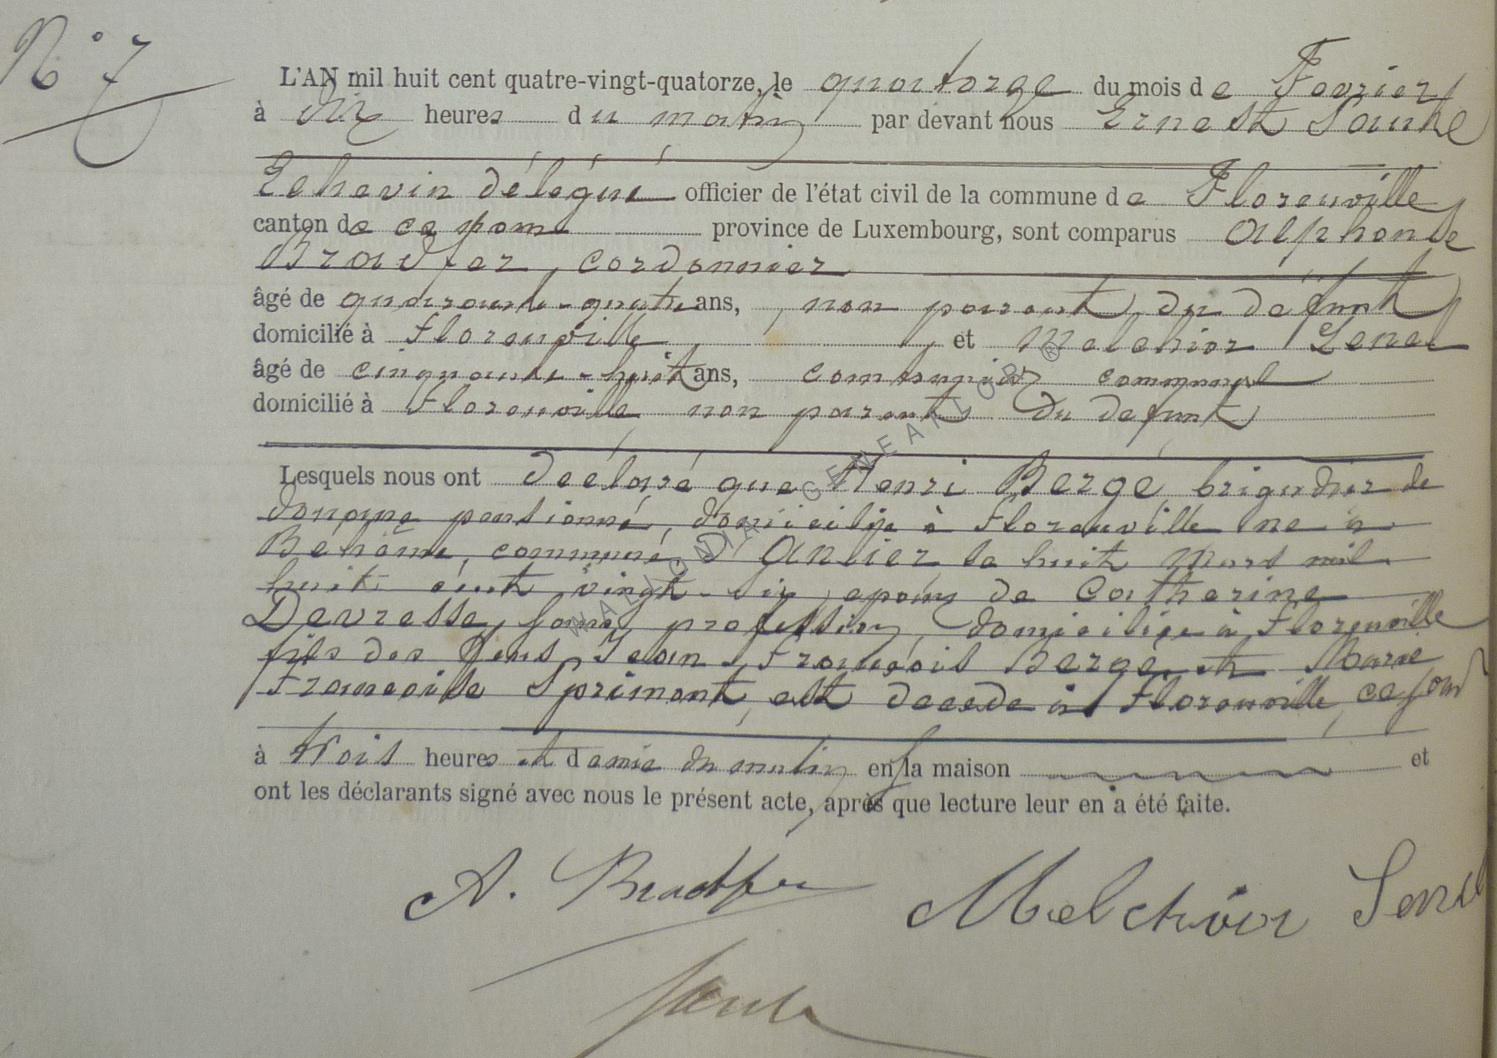 N° 7
L'AN mil huit cent quatre-vingt-quatorze, le quatorze du mois de Fevrier
à dix heures du matin par devant nous Ernest Sauté
Echevin délégué officier de l'état civil de la commune de Florenville
canton de ce nom province de Luxembourg, sont comparus Alphonse
Bradfer, cordonnier
âgé de quarante-quatre ans, non parent du defunt
domicilié à Florenville et Melchior
âgé de cinquante-huit ans, communal
domicilié à Florenville non parent du defunt
Lesquels nous ont déclaré que Henri Bergé, brigadier de
douane pensionné, domicilié à Florenville né à
Behême, commune d'Anlier le huit Mars mil
huit cent vingt-six, époux de Catherine
Devresse, sans profession, domiciliée à Florenville
fils des feus Jean-François Bergé et Marie
Françoise Sprimont, est decede à Florenville, ce jour
à trois heures et demie du matin en sa maison et
ont les déclarants signé avec nous le présent acte, après que lecture leur en a été faite.
A. Bradfer Melchior
WALLONIA GENEALOGY ®